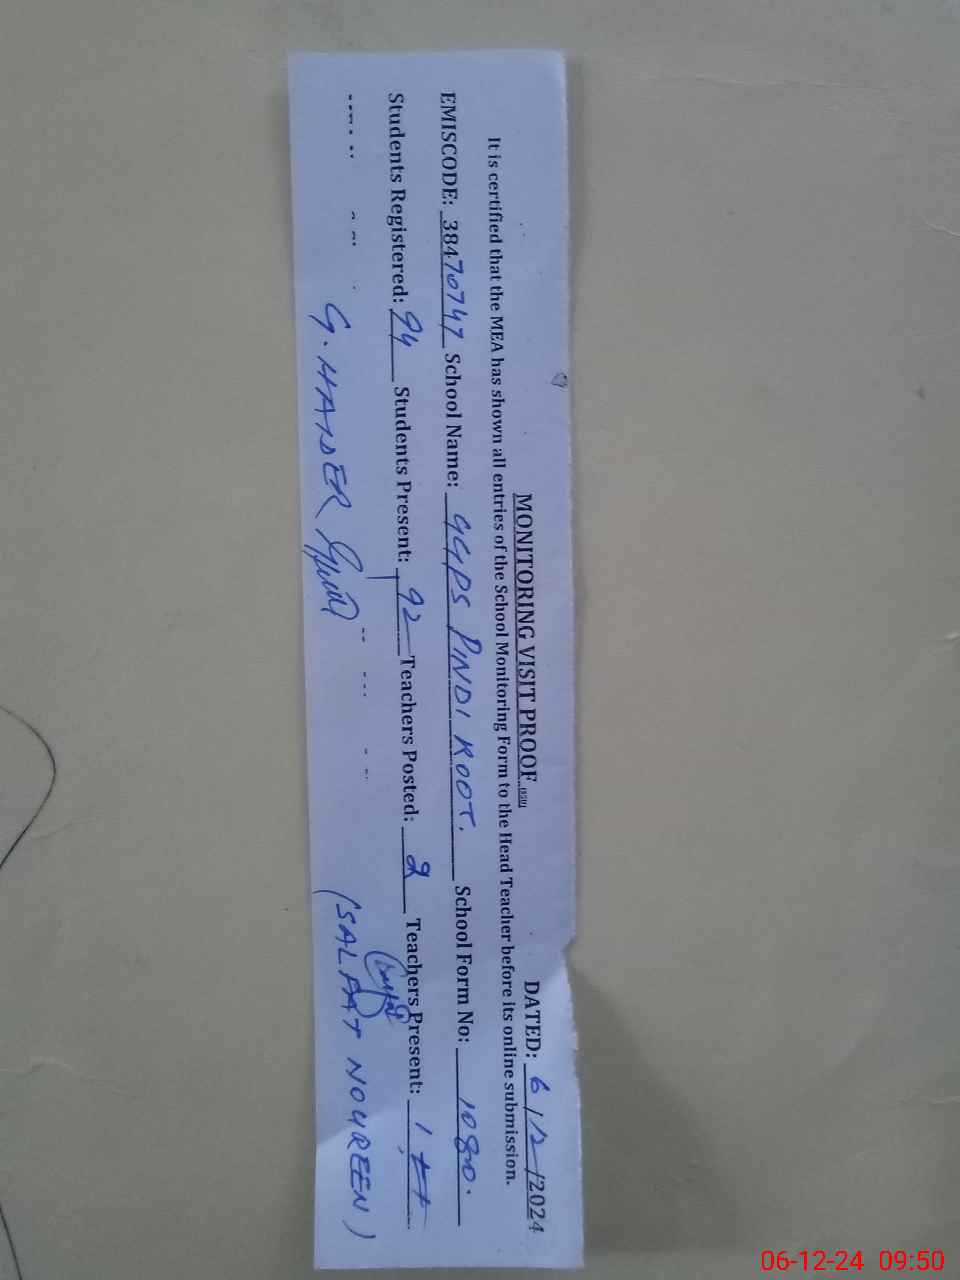 MONITORING VISIT PROOF
DATED: 6/12/2024
It is certified that the MEA has shown all entries of the School Monitoring Form to the Head Teacher before its online submission.
EMISCODE: 38470747 School Name: GGPS PINDI KOOT. School Form No: 1080.
Students Registered: 94 Students Present: 92 Teachers Posted: 2 Teachers Present: 1
G. HAIDER
NOUREEN)
06-12-24 09:50